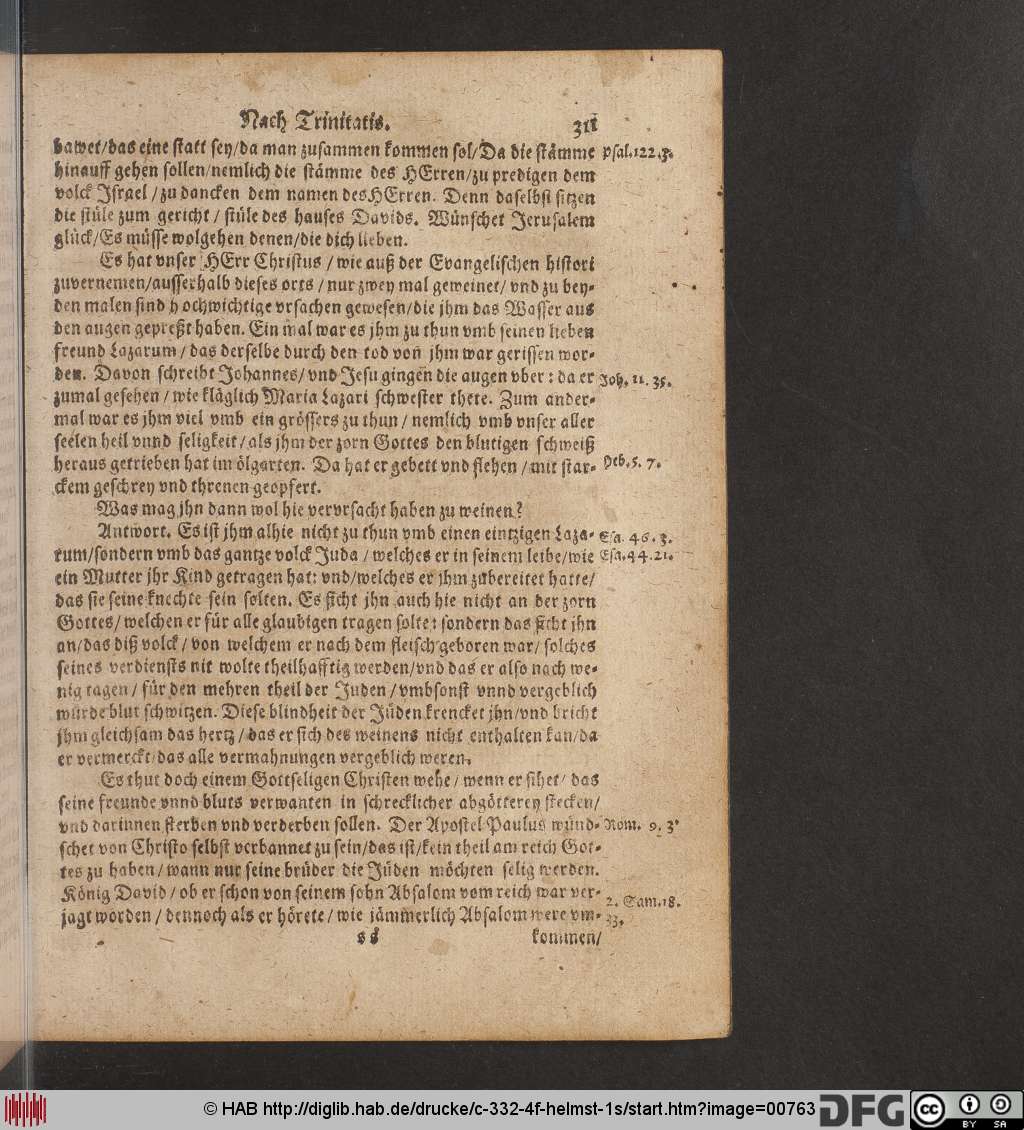 Nach Trinitatis. 311
bawet/das eine statt sey/da man zusammen kommen sol/Da die stämme Psal.122.3.
hinauff gehen sollen/nemlich die stämme des HErren/zu predigen dem
volck Israel / zu dancken dem namen des HErren. Denn daselbst sitzen
die stüle zum gericht / stüle des hauses Davids. Wünschet Jerusalem
glück/Es müsse wolgehen denen/die dich lieben.
Es hat vnser HErr Christus / wie auß der Evangelischen histori
zuvernemen/ausserhalb dieses orts / nur zwey mal geweinet/ vnd zu bey-
den malen sind hochwichtige vrsachen gewesen/die jhm das Wasser aus
den augen gepreßt haben. Ein mal war es jhm zu thun vmb seinen lieben
freund Lazarum / das derselbe durch den tod von jhm war gerissen wor-
den. Davon schreibt Johannes/ vnd Jesu gingen die augen vber: da er Joh. 11. 35.
zumal gesehen / wie kläglich Maria Lazari schwester thete. Zum ander-
mal war es jhm viel vmb ein grössers zu thun / nemlich vmb vnser aller
seelen heil vnnd seligkeit / als jhm der zorn Gottes den blutigen schweiß
heraus getrieben hat im ölgarten. Da hat er gebett vnd flehen / mit star- Heb. 5. 7.
ckem geschrey vnd threnen geopfert.
Was mag jhn dann wol hie vervrsacht haben zu weinen?
Antwort. Es ist jhm alhie nicht zu thun vmb einen eintzigen Laza- Esa. 46. 3.
rum/sondern vmb das gantze volck Juda / welches er in seinem leibe/wie Esa.44.21.
ein Mutter jhr Kind getragen hat: vnd/welches er jhm zubereitet hatte/
das sie seine knechte sein solten. Es ficht jhn auch hie nicht an der zorn
Gottes/ welchen er für alle glaubigen tragen solte: sondern das ficht jhn
an/das diß volck / von welchem er nach dem fleisch geboren war/ solches
seines verdiensts nit wolte theilhafftig werden/vnd das er also nach we-
nig tagen / für den mehren theil der Juden / vmbsonst vnnd vergeblich
würde blut schwitzen. Diese blindheit der Jüden krencket jhn/vnd bricht
jhm gleichsam das hertz / das er sich des weinens nicht enthalten kan/da
er vermerckt/das alle vermahnungen vergeblich weren.
Es thut doch einem Gottseligen Christen wehe / wenn er sihet/ das
seine freunde vnnd bluts verwanten in schrecklicher abgötterey stecken/
vnd darinnen sterben vnd verderben sollen. Der Apostel Paulus wünd- Rom. 9. 3.
schet von Christo selbst verbannet zu sein/das ist/kein theil am reich Got-
tes zu haben/ wann nur seine brüder die Jüden möchten selig werden.
König David / ob er schon von seinem sohn Absalom vom reich war ver- 2. Sam.18.
jagt worden / dennoch als er hörete / wie jämmerlich Absalom were vm- 33.
ss kommen/
© HAB http://diglib.hab.de/drucke/c-332-4f-helmst-1s/start.htm?image=00763 DFG cc BY SA